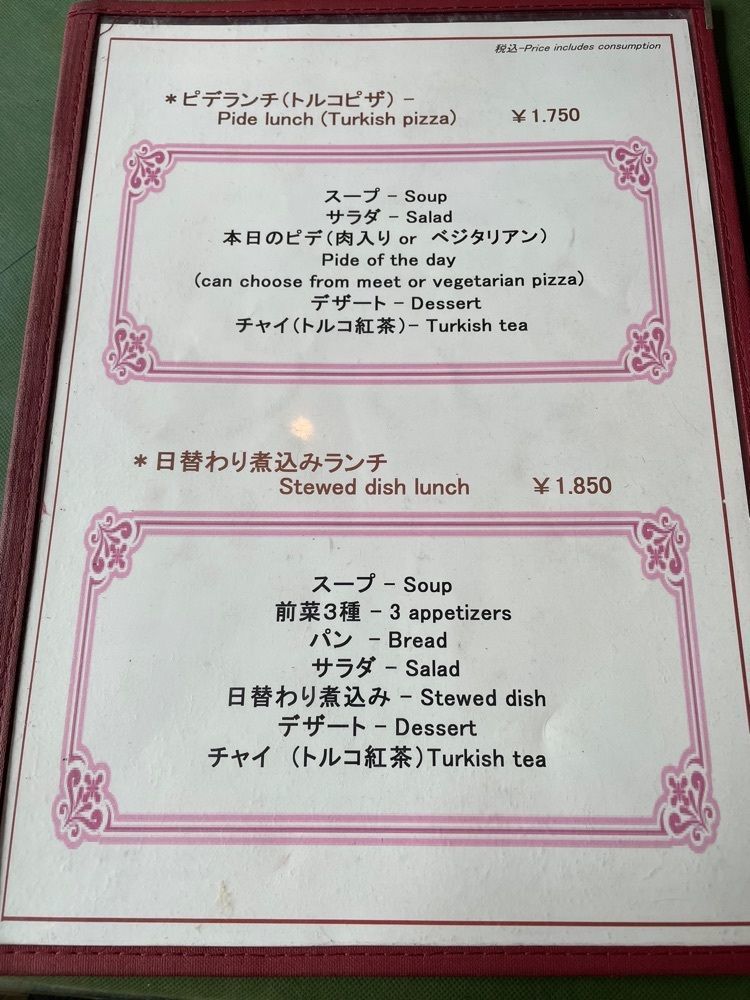 税込-Price includes consumption
＊ピデランチ（トルコピザ） -
Pide lunch (Turkish pizza) ￥1.750
スープ - Soup
サラダ - Salad
本日のピデ（肉入り or ベジタリアン）
Pide of the day
(can choose from meet or vegetarian pizza)
デザート - Dessert
チャイ（トルコ紅茶）- Turkish tea
＊日替わり煮込みランチ
Stewed dish lunch ￥1.850
スープ - Soup
前菜３種 - 3 appetizers
パン - Bread
サラダ - Salad
日替わり煮込み - Stewed dish
デザート - Dessert
チャイ （トルコ紅茶）Turkish tea